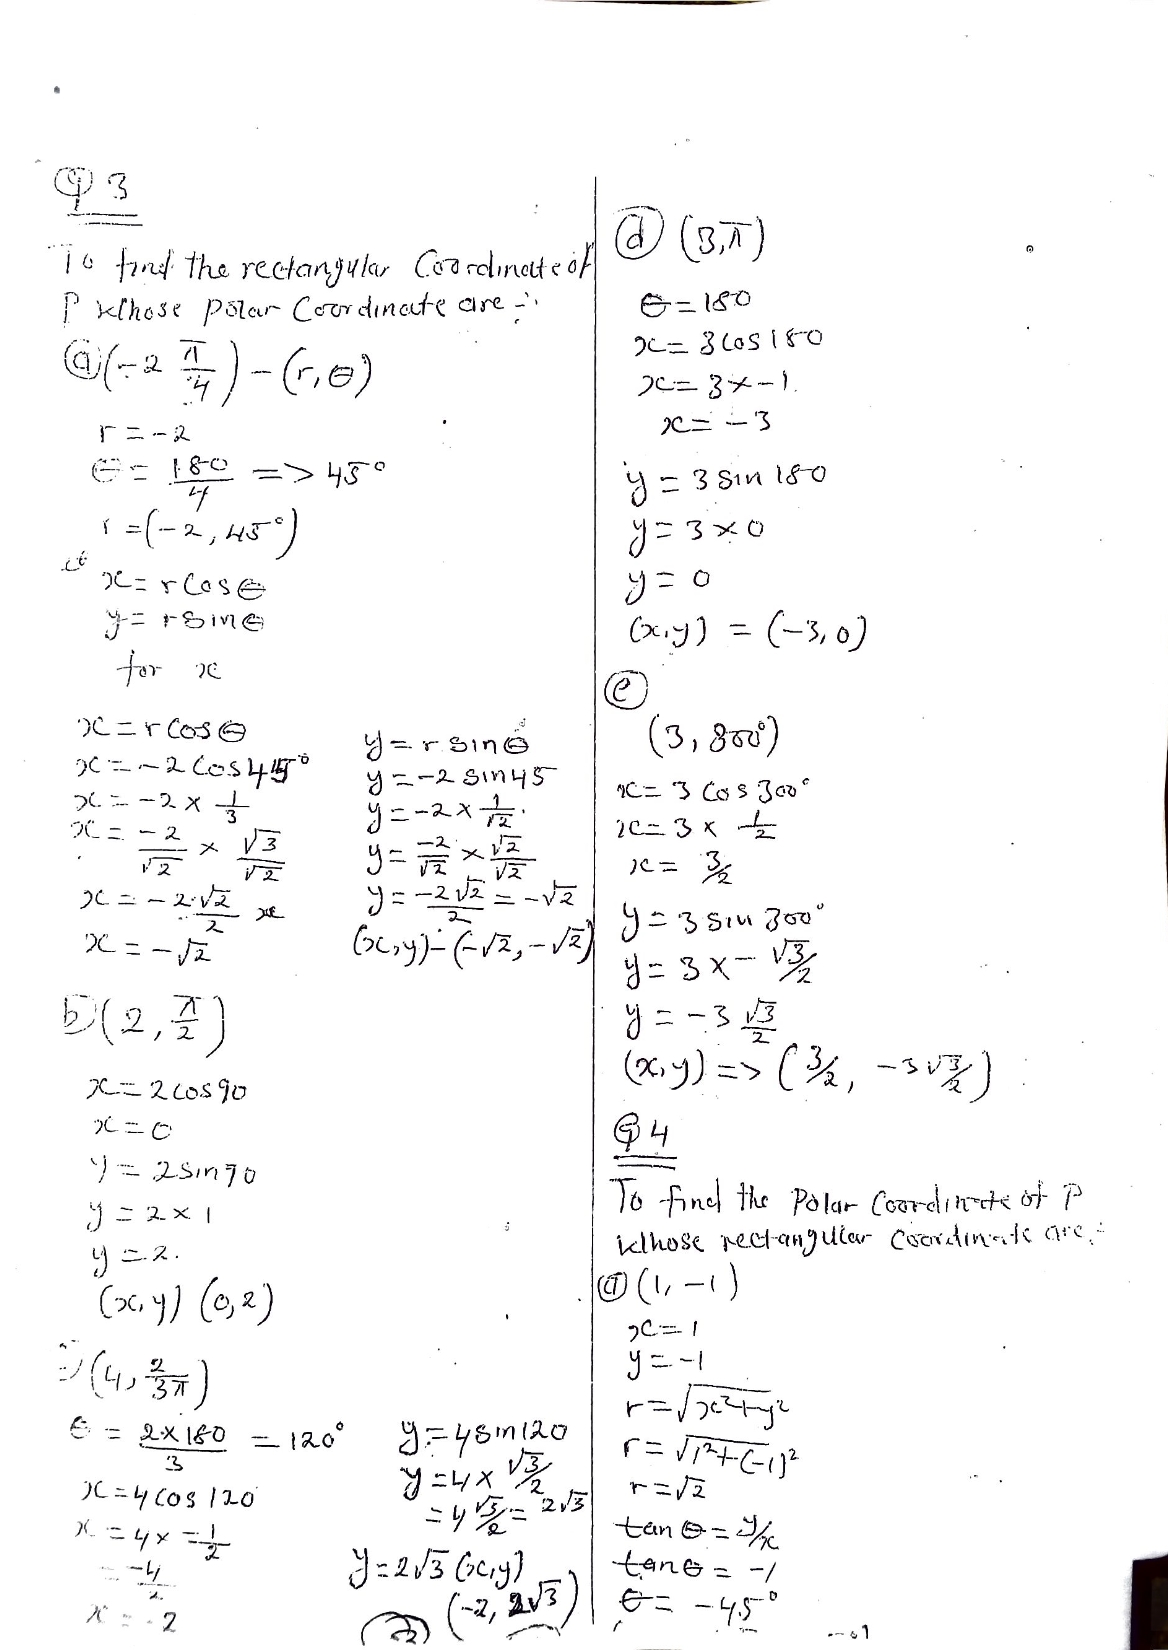 Q 3
To find the rectangular Coordinate of
P whose polar Coordinate are :-
(a) (-2 π/4) - (r, θ)
r = -2
θ = 180/4 => 45°
r = (-2, 45°)
x = r Cos θ
y = r Sin θ
for x
x = r Cos θ
x = -2 Cos 45°
x = -2 × 1/3
x = -2/√2 × √3/√2
x = -2√2/2
x = -√2
y = r sin θ
y = -2 Sin 45
y = -2 × 1/√2.
y = -2/√2 × √2/√2
y = -2√2/2 = -√2
(x, y) - (-√2, -√2)
b) (2, π/2)
x = 2 cos 90
x = 0
y = 2 Sin 90
y = 2 × 1
y = 2.
(x, y) (0, 2)
(4, 2/3π)
θ = 2×180/3 = 120°
x = 4 cos 120
x = 4 × -1/2
= -4/2
x = -2
y = 4 Sin 120
y = 4 × √3/2
= 4 √3/2 = 2√3
y = 2√3 (x, y)
(-2, 2√3)
(d) (3, π)
θ = 180
x = 3 Cos 180
x = 3 × -1.
x = -3
y = 3 Sin 180
y = 3 × 0
y = 0
(x, y) = (-3, 0)
(e)
(3, 300°)
x = 3 Cos 300°
x = 3 × 1/2
x = 3/2
y = 3 Sin 300°
y = 3 × - √3/2
y = -3 √3/2
(x, y) => (3/2, -3√3/2)
Q 4
To find the Polar Coordinate of P
whose rectangular Coordinate are :-
(a) (1, -1)
x = 1
y = -1
r = √x²+y²
r = √1²+(-1)²
r = √2
tan θ = y/x
tan θ = -1
θ = -45°